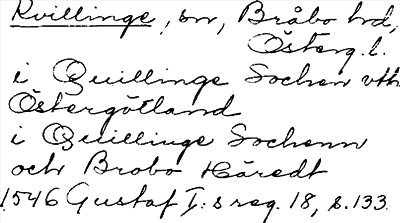 Kvillinge, sn, Bråbo hd,
Österg. l.
i Quillinge Sochen vtk
Östergötland
i Quillinge Sochenn
och Brobo Häredt
1546 Gustaf I:s reg. 18, s. 133.